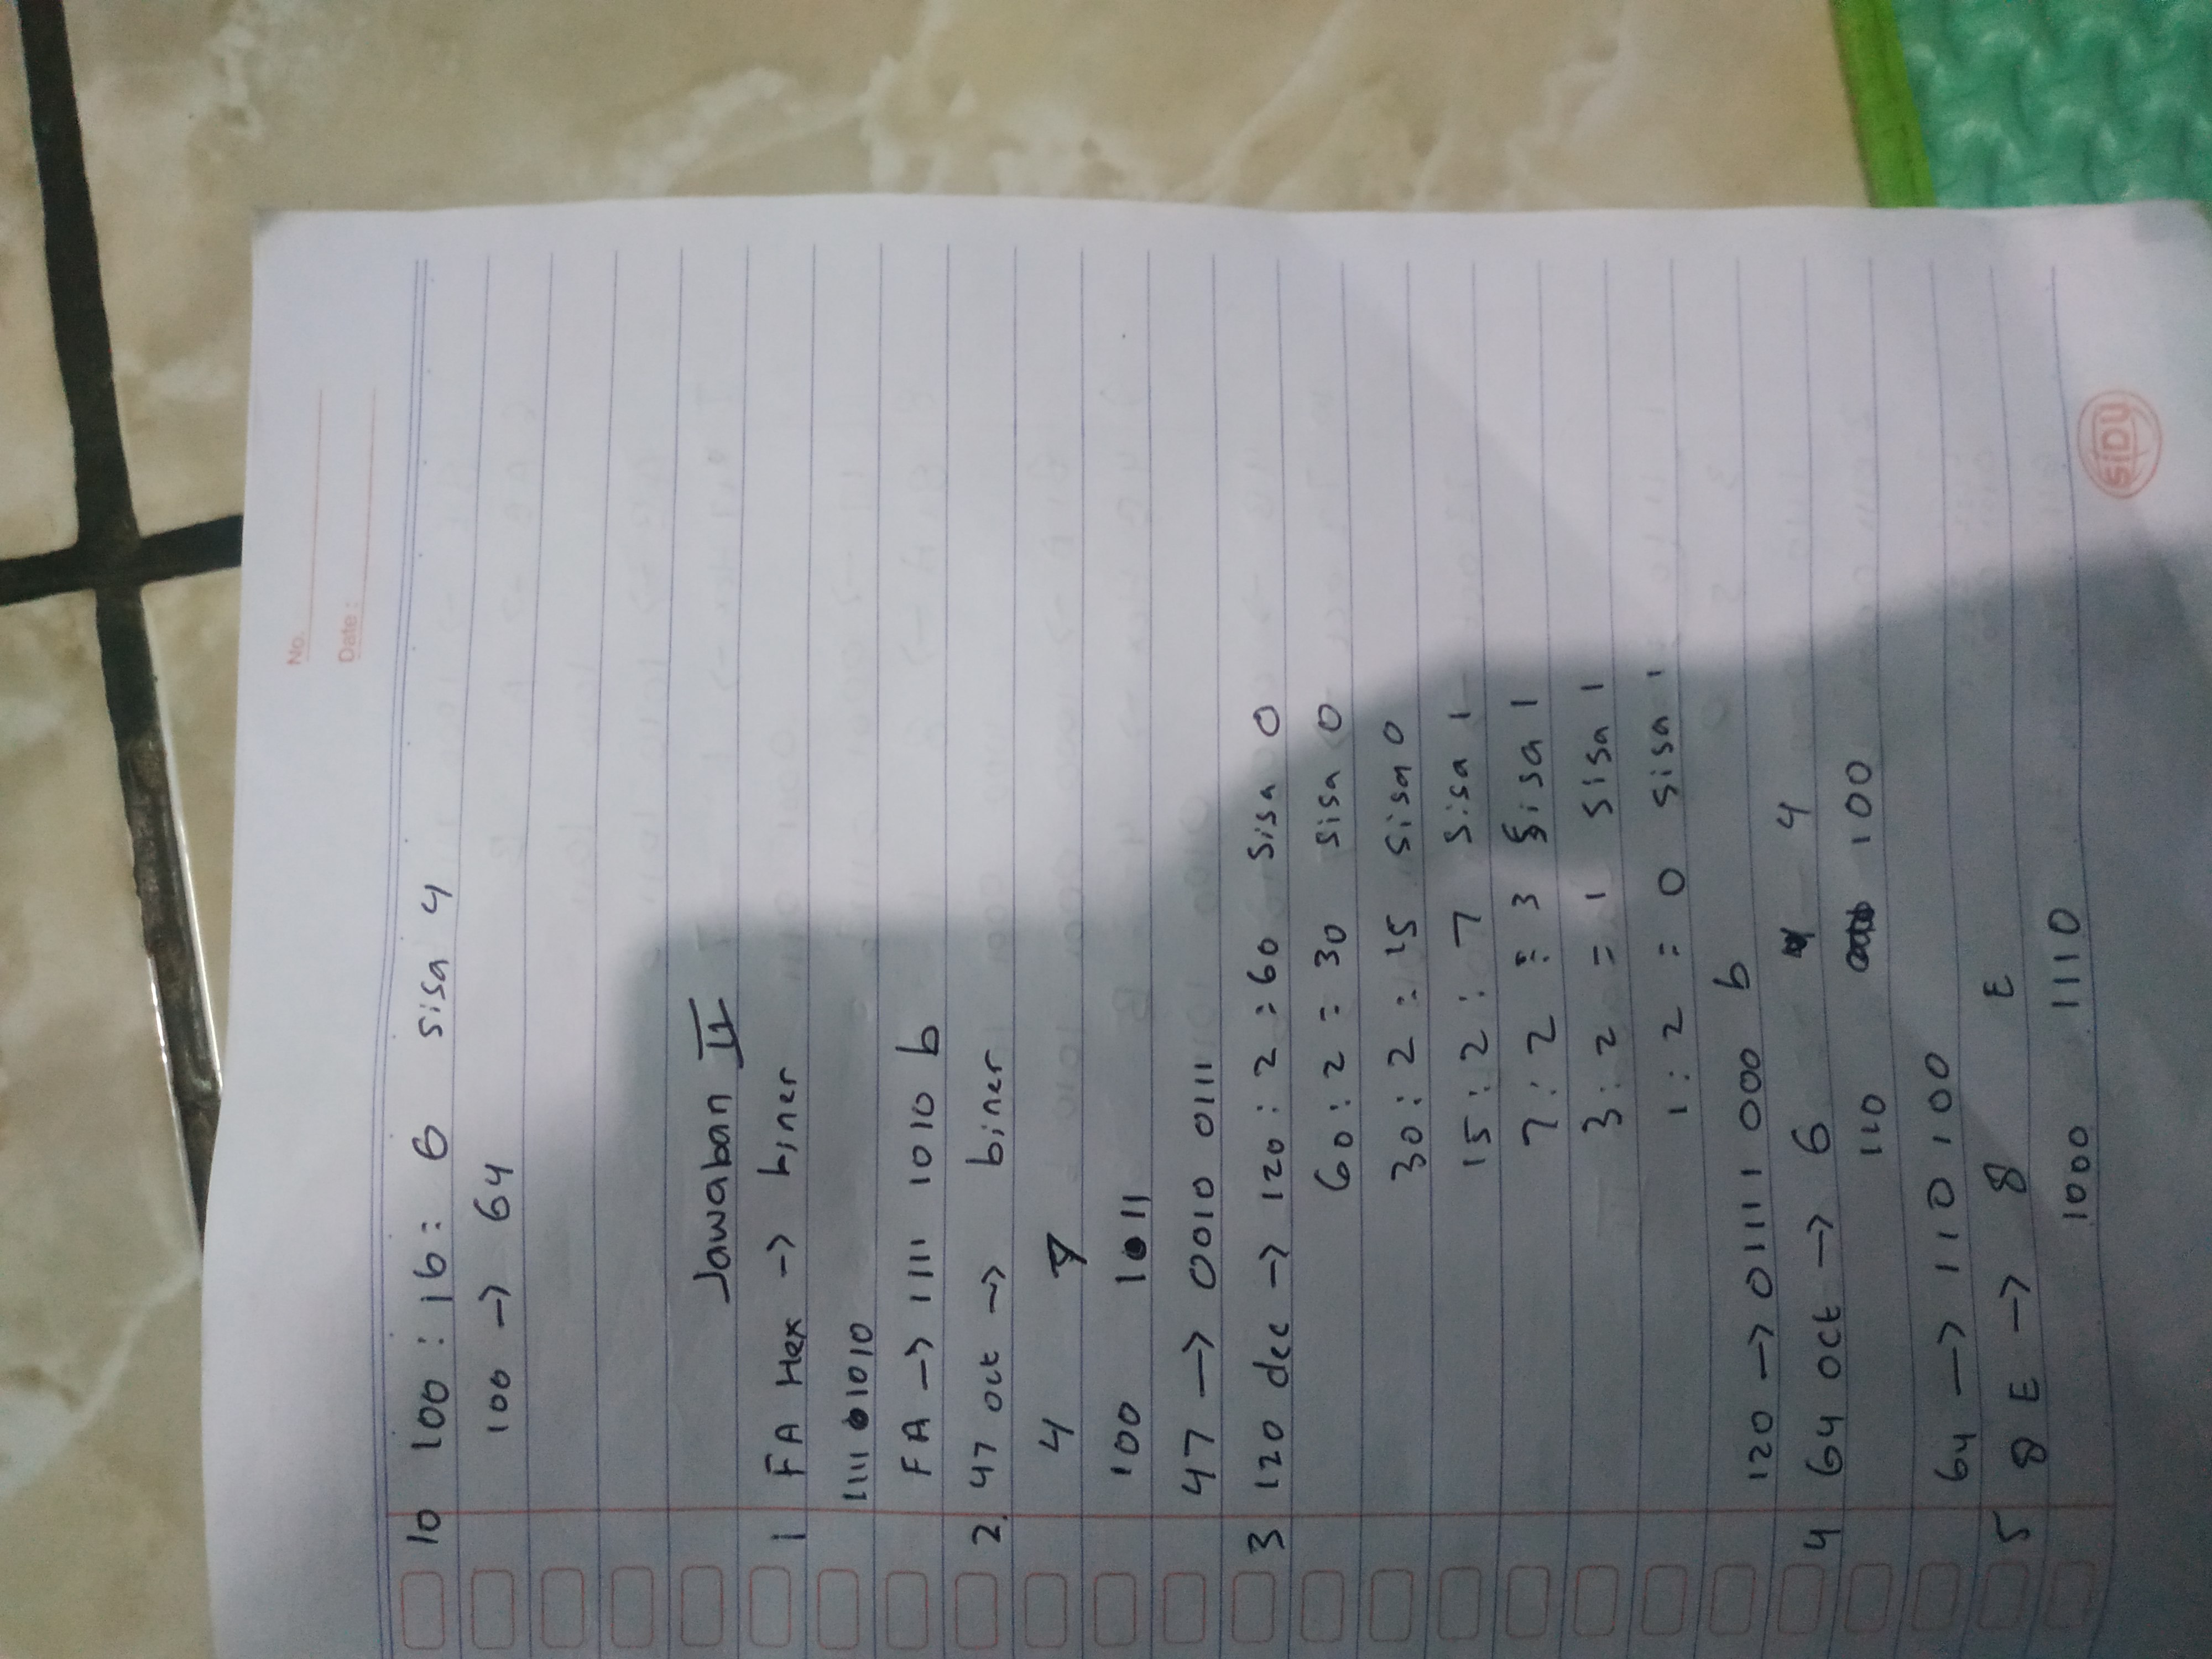 No.
Date:
10 100 : 16 : 6 sisa 4
100 → 64
Jawaban II
1 FA Hex → biner
1111 1010
FA → 1111 1010 b
2. 47 oct → biner
4 7
100 1 11
47 → 0010 0111
3 120 dec → 120 : 2 = 60 sisa 0
60 : 2 = 30 sisa 0
30 : 2 = 15 sisa 0
15 : 2 : 7 sisa 1
7 : 2 = 3 sisa 1
3 : 2 = 1 sisa 1
1 : 2 = 0 sisa 1
120 → 0111 1 000 b
4 64 oct → 6 4
110 100
64 → 110 100
5 8 E → 8 E
1000 1110
SiDU